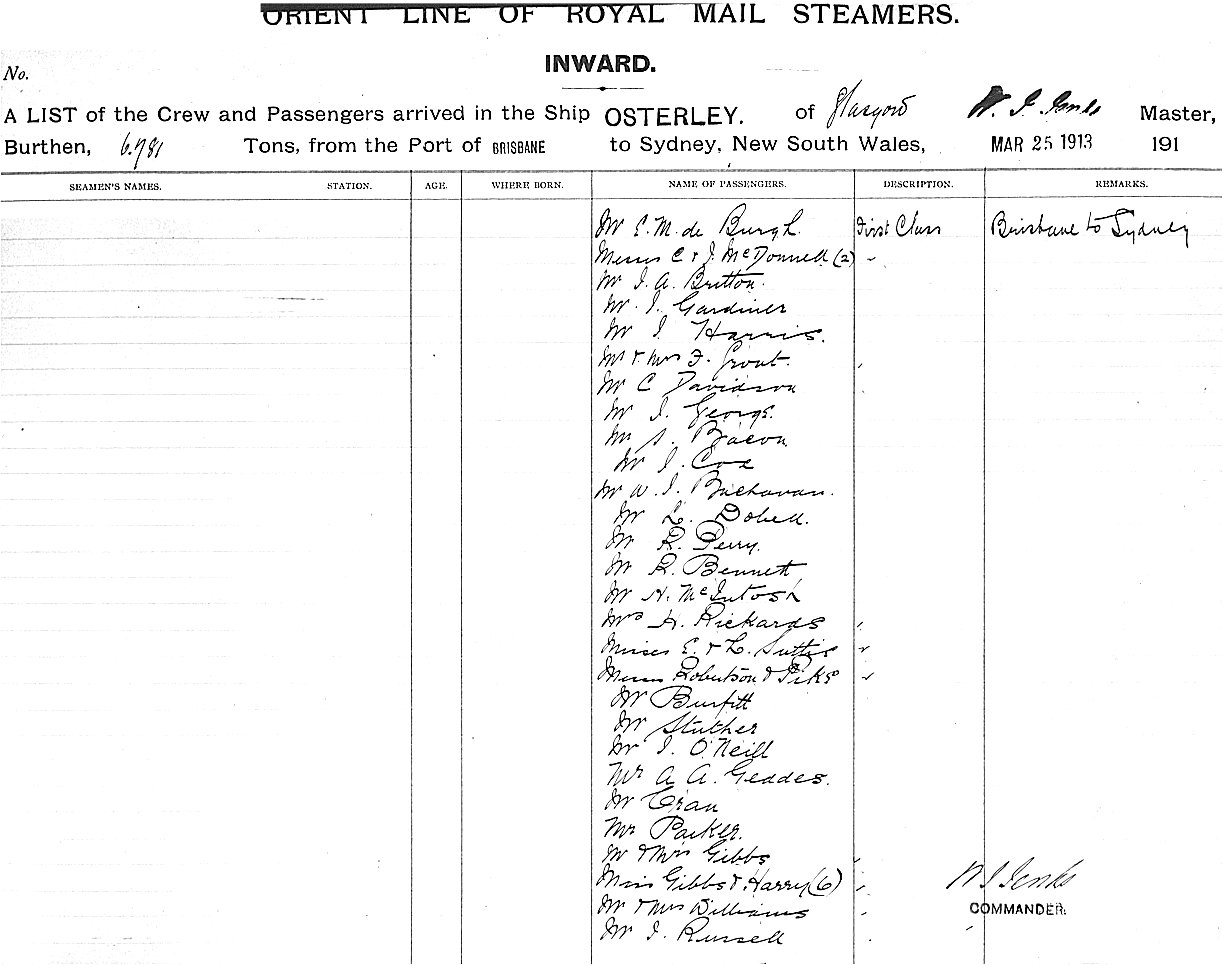 ORIENT LINE OF ROYAL MAIL STEAMERS.
INWARD.
No.
A LIST of the Crew and Passengers arrived in the Ship OSTERLEY. of Glasgow W. J. Jenks Master,
Burthen, 6,781 Tons, from the Port of BRISBANE to Sydney, New South Wales, MAR 25 1913 191
SEAMEN'S NAMES. STATION. AGE. WHERE BORN. NAME OF PASSENGERS. DESCRIPTION. REMARKS.
Mr E. M. de Burgh. First Class Brisbane to Sydney
Messrs C & J. McDonnell (2) "
Mr J. A. Britton.
Mr J. Gardiner
Mr J Harris.
Mr & Mrs F. Grout.
Mr C Davidson
Mr J. George.
Mr S. Bacon
Mr J. Cox
Mr W. J. Buchanan.
Mr L. Dobell.
Mr R. Perry.
Mr R. Bennett
Mr H. McIntosh
Mrs H. Rickards
Misses E. & L. Suttie
Messrs Robertson & Pike
Mr Burfitt
Mr
Mr J. O'Neill
Mr A. A. Geddes.
Mr Cran
Mr Parker.
Mr & Mrs Gibbs
Miss Gibbs & Harry (6)
Mr & Mrs Williams
Mr J. Russell
W J Jenks
COMMANDER.